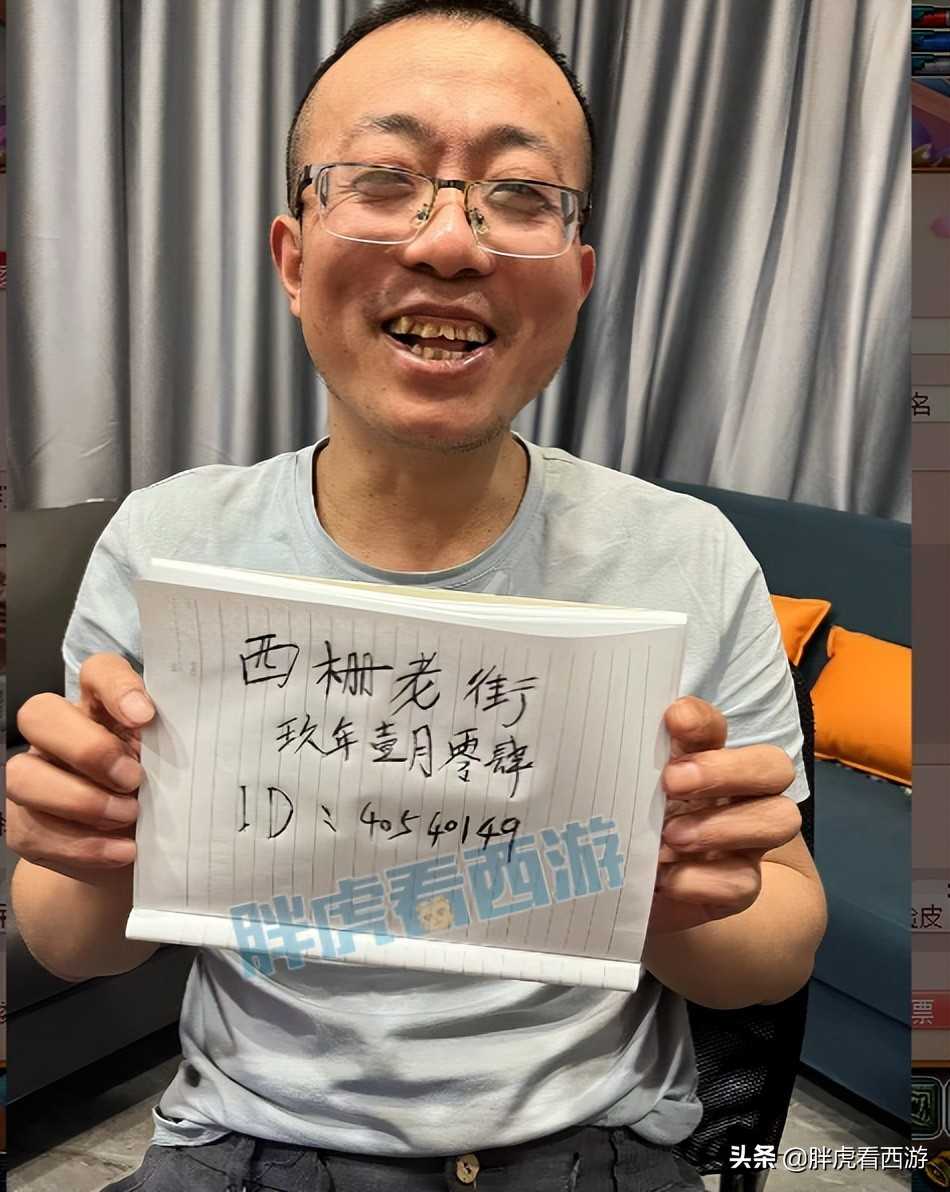 西栅老街
玖年壹月零肆
ID：40540149
胖虎看西游
名
脸皮
票
头条 @胖虎看西游